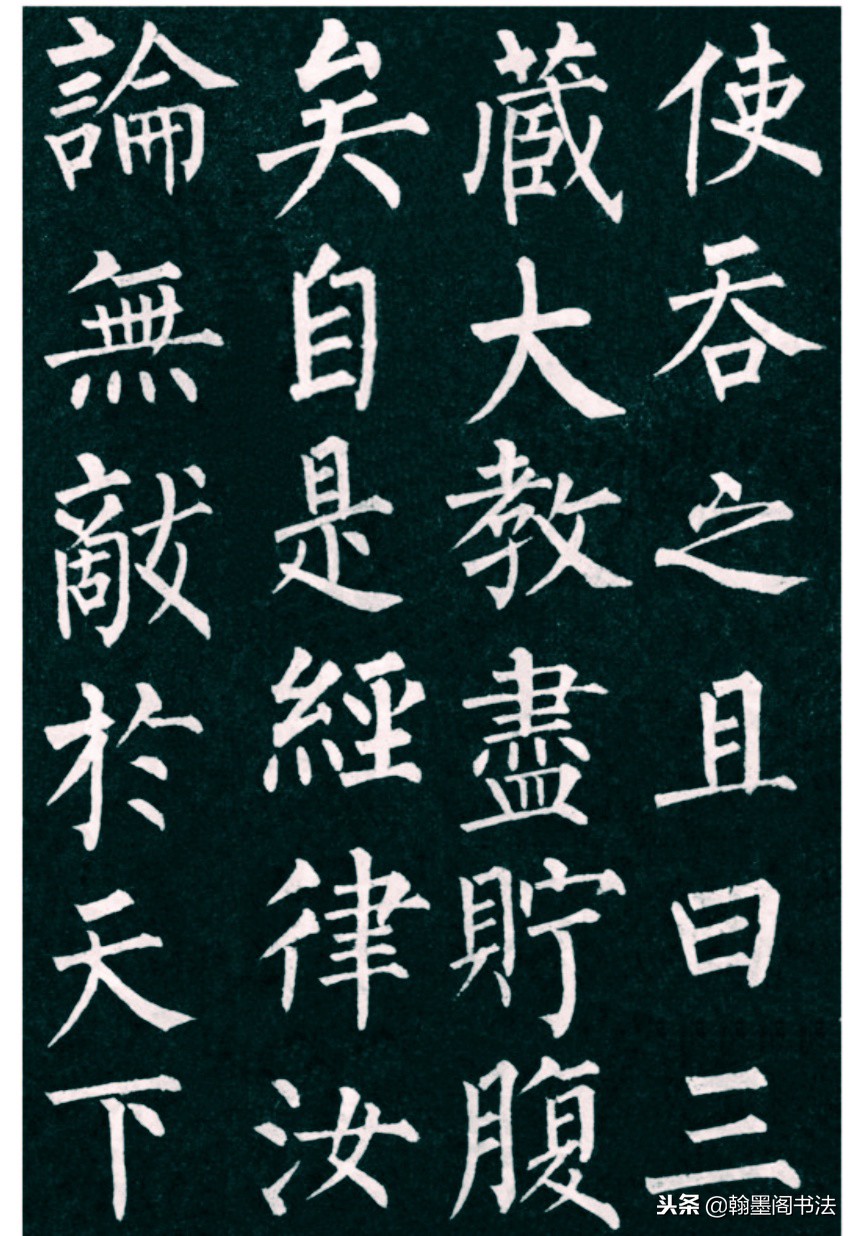 使吞之且曰三
藏大教盡貯腹
矣自是經律汝
論無敵於天下
头条 @翰墨阁书法